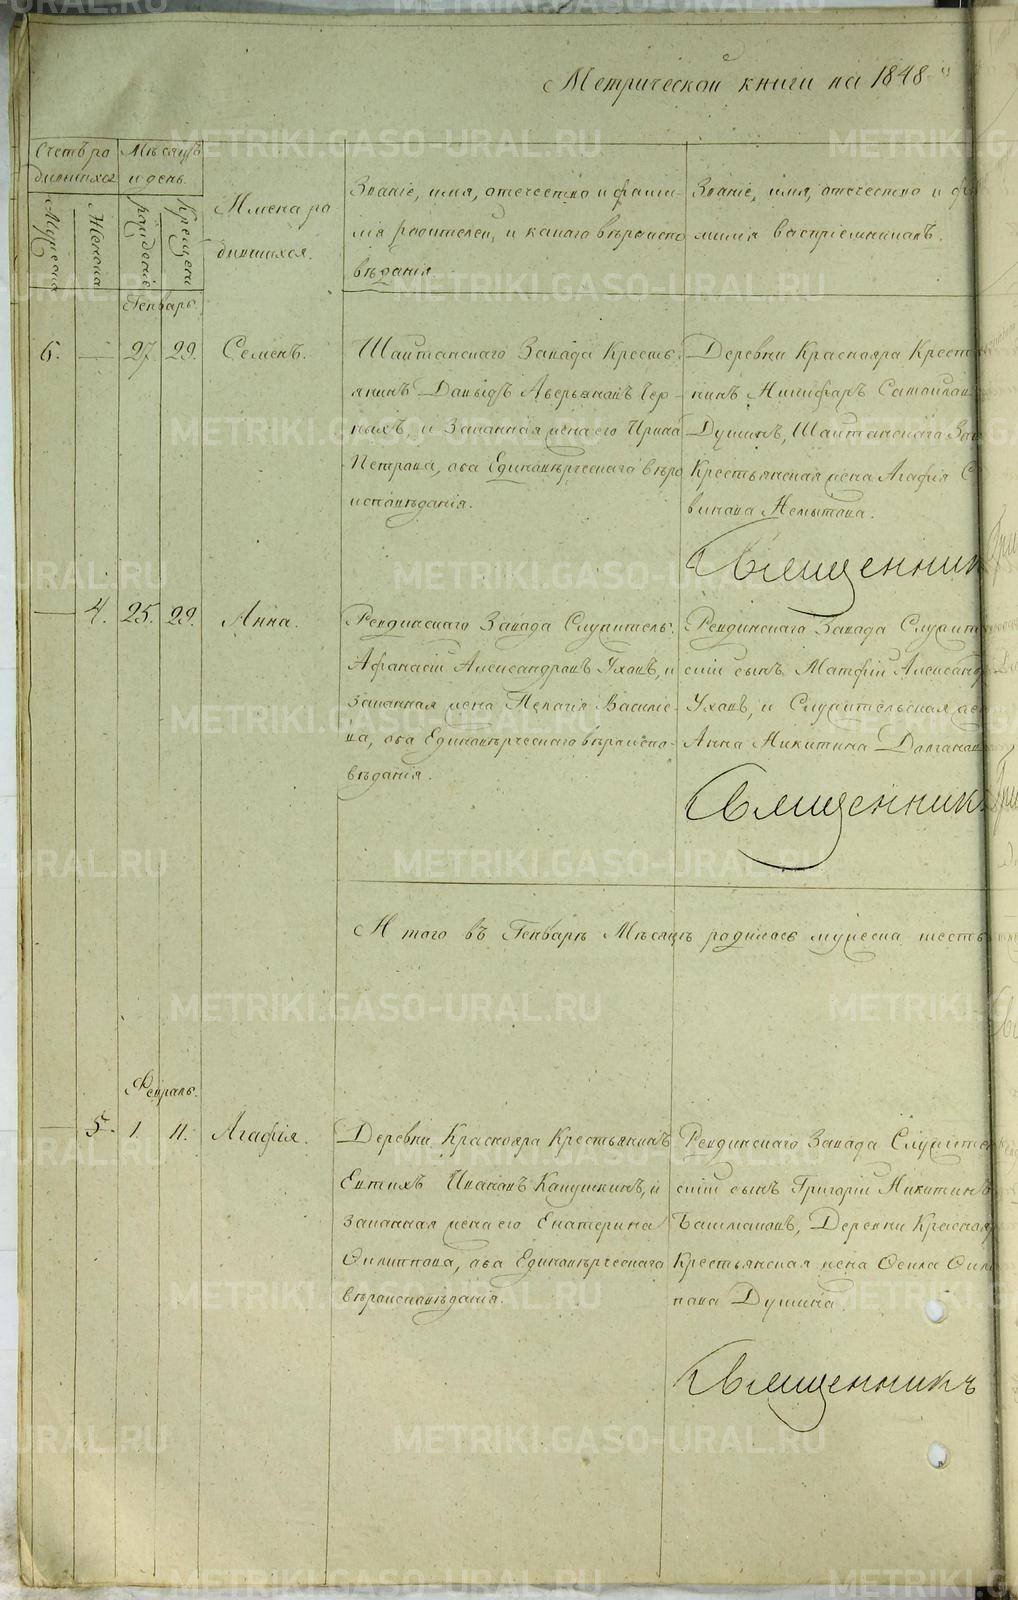 Метрической книги на 1848
Счетъ ро Мѣсяцъ
дившихся и день.
Мужеска Женска рожденіе Крещені
Имена ро
дившихся.
Званіе, имя, отечество и фами-
лія родителей, и какого вѣроиспо
вѣданія.
Званіе, имя, отечество и фа
милия воспріемниковъ.
Генварь.
6. 27. 29. Семенъ.
Шайтанскаго Завода Кресть-
янинъ Давыдъ Аверьяновъ Чер-
ныхъ, и Законная жена его Ирина
Петрова, оба Единовѣрческаго вѣро
исповѣданія.
Деревни Краснояра Крест
нинъ Никифоръ
Душинъ, Шайтанскаго Зав
Крестьянская жена Агафія С
винова Немытова.
Священник
4. 25. 29. Анна.
Ревдинскаго Завода Служитель
Афанасій Александровъ Уховъ, и
Законная жена Пелагія Василье-
ва, оба Единовѣрческаго вѣроиспо-
вѣданія.
Ревдинскаго Завода Служит
скій сынъ Матфій Александр
Уховъ, и Служительская
Анна Никитина
Священник
Итого въ Генварѣ Мѣсяцѣ родилось мужеска шесть
Февраль.
5. 1. 11. Агафія.
Деревни Краснояра Крестьянинъ
Евтихъ Ивановъ Капушкинъ, и
законная жена его Екатерина
Филиппова, оба Единовѣрческаго
вѣроисповѣданія.
Ревдинскаго Завода Служител
скій сынъ Григорій Никитинъ
Башмаковъ, Деревни Красноя
Крестьянская жена Фекла Фил
пова Душина.
Священникъ
METRIKI.GASO-URAL.RU